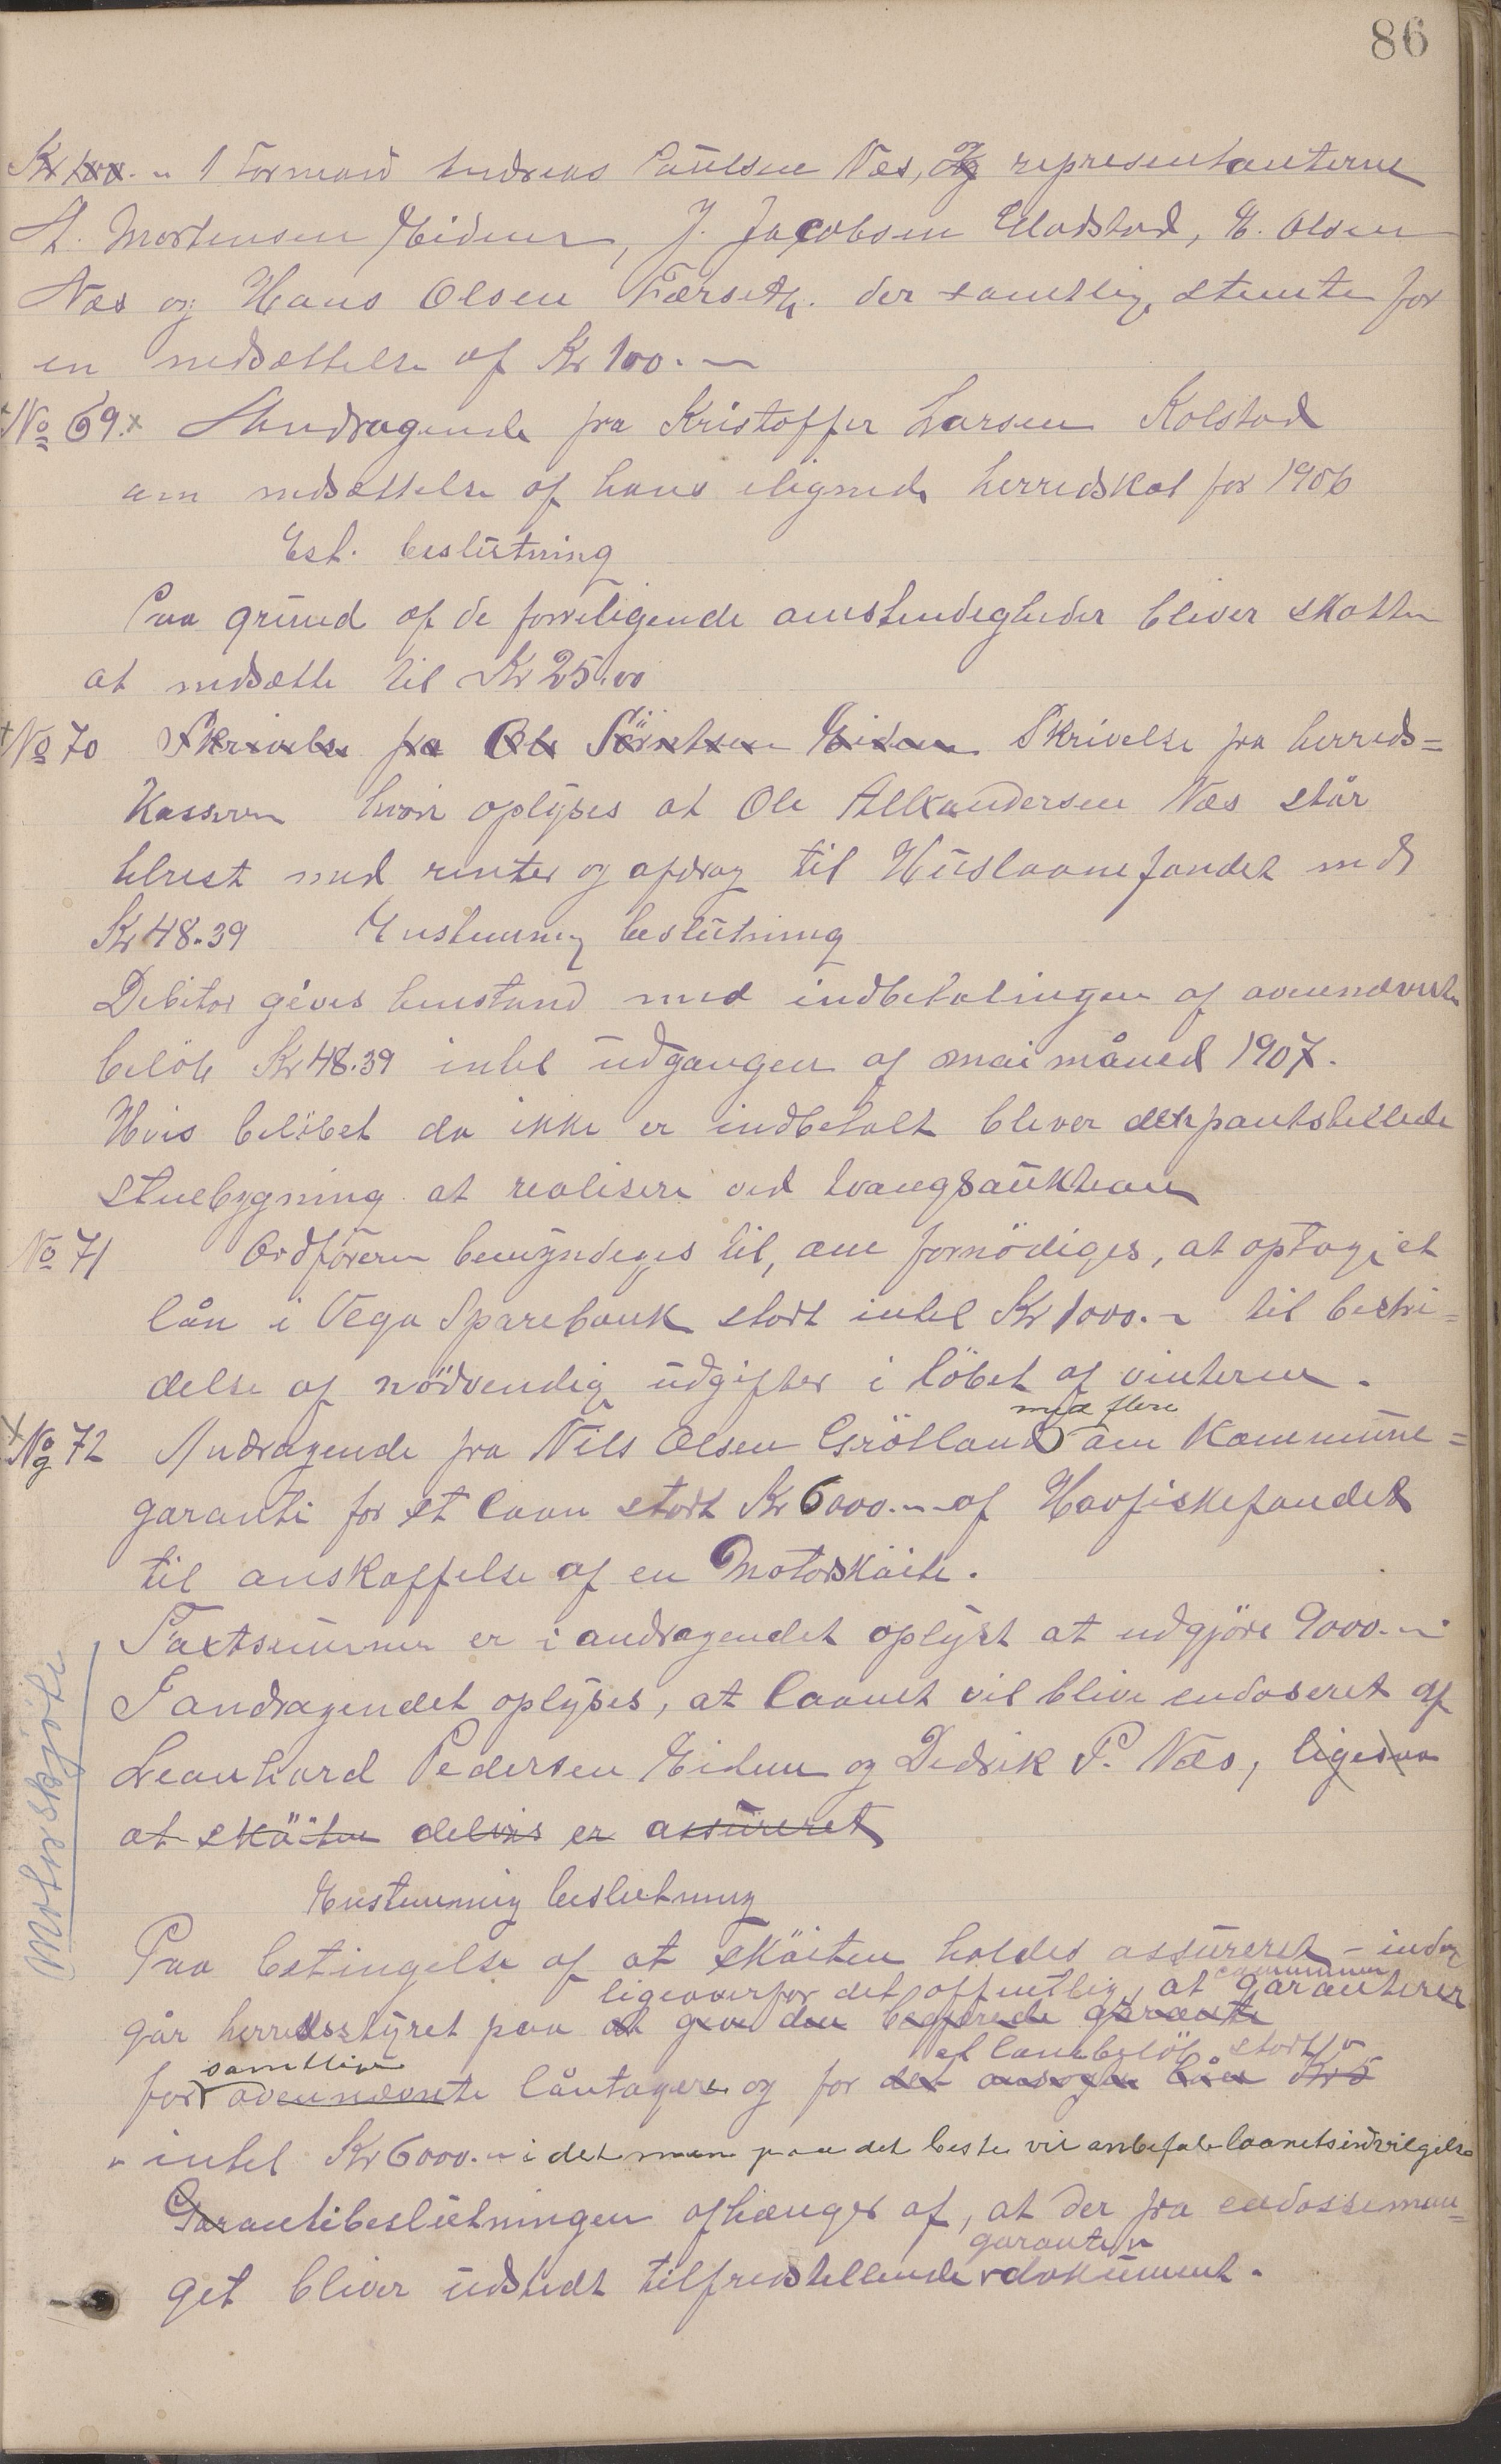 86
Kr 100.- 1 Formand Andreas Paulsen Næs, og representanterne
A. Mortensen Eidem, J. Jacobsen Gladstad, E. Olsen
Næs og Hans Olsen Færseth. der samtlig stemte for
en nedsættelse af Kr 100.-
No 69. Andragende fra Kristoffer Larsen Kolstad
om nedsættelse af hans ilignede herredskat for 1906
Est. beslutning
Paa grund af de forreligende omstendigheder bliver skatten
at nedsætte til Kr 25.00
No 70 Skrivelse fra Ole Eidem Skrivelse fra herreds=
kassern hvori oplyses at Ole Alexandersen Næs står
tilrest med renter og afdrag til Huslaanefondet med
Kr 48.39 Enstemmig beslutning
Debitor gives henstand med indbetalingen af ovennævnte
beløb Kr 48.39 intil udgangen af mai måned 1907.
Hvis beløbet da ikke er indbetalt bliver den pantstillede
stuebygning at realisere ved tvangsauktion
No 71 Ordføreren bemyndiges til, om fornødiges, at optage et
lån i Vega Sparebank stort intil Kr 1000.- til bestri=
delse af nødvendig udgifter i løbet af vinteren.
med flere
No 72 Andragende fra Nils Olsen Grötland om Kommune=
garanti for et laan stort Kr 6000.- af Havfiskefondet
til anskaffelse af en Motorskøite.
Taxtsummen er i andragendet oplyst at udgjøre 9000.-
I andragendet oplyses, at laanet vil blive endoseret af
Leonhard Pedersen Eidem og Dedrik P. Næs, ligesaa
at skøiten delvis er assureret
Motorskjöite
Enstemmig beslutning
Paa betingelse af at skøiten holdes assureret - indgår
ligeoverfor det offentlig, at communen garanterer
går herredsstyret paa at give den begjærede garanti
samtlige et lånebeløb stort
for ovennævnte låntagere og for det ansøgte lån Kr 6
intil Kr 6000.- i det man paa det beste vil anbefale laanets indvilgelse
Garantibeslutningen afhænger af, at der fra endossemen=
garanti
get bliver udstedt tilfredstillende dokument.